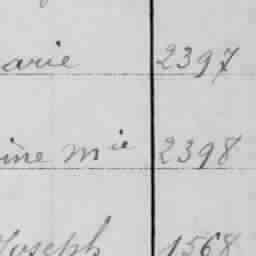 arie 2397
ine Mie 2398
Joseph 1568